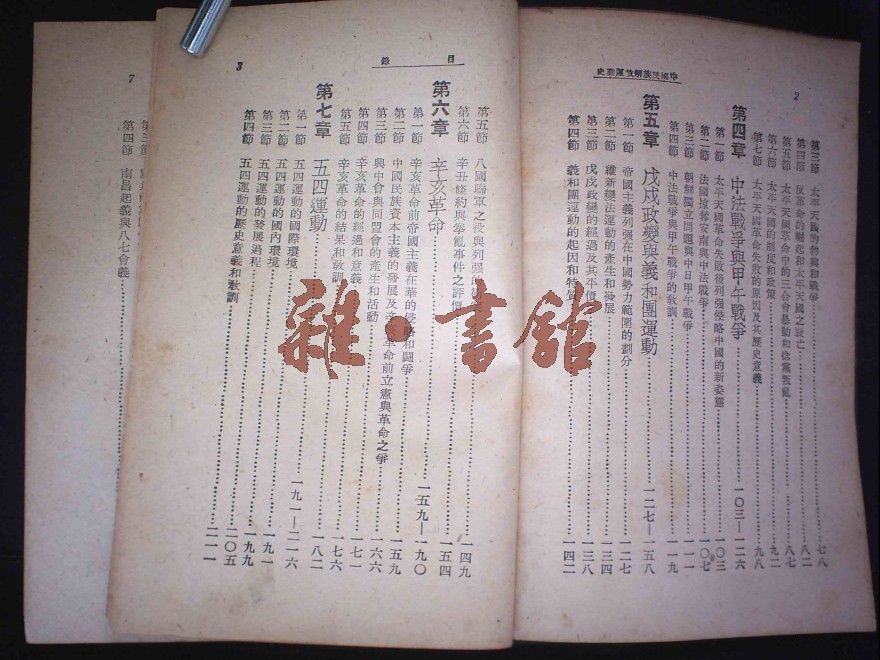 中國民族解放運動史
2
第三節 太平天國的發展和戰爭 七八
第四節 反革命的崛起和太平天國之敗亡 八二
第五節 太平天國革命中的三合會暴動和捻黨叛亂 八七
第六節 太平天國的制度和政策 九二
第七節 太平天國革命失敗的原因及其歷史意義 九八
第四章 中法戰爭與甲午戰爭 一〇三—一二六
第一節 太平天國革命失敗後列强侵略中國的新姿態 一〇三
第二節 法國掠奪安南與中法戰爭 一〇七
第三節 朝鮮獨立問題與中日甲午戰爭
第四節 中法戰爭與甲午戰爭的敎訓 一一九
第五章 戊戌政變與義和團運動 一二七—一五八
第一節 帝國主義列强在中國勢力範圍的劃分 一二七
第二節 維新變法運動的產生和發展 一三四
第三節 戊戌政變的經過及其平價 一三八
第四節 義和團運動的起因和特質 一四二
目錄
3
第五節 八國聯軍之役與列强的 一四九
第六節 辛丑條約與拳亂事件之評價 一五四
第六章 辛亥革命 一五九—一九〇
第一節 辛亥革命前帝國主義在華的侵略和鬪爭 一五九
第二節 中國民族資本主義的發展及辛亥革命前立憲與革命之爭 一六六
第三節 興中會與同盟會的產生和活動 一七一
第四節 辛亥革命的經過和意義 一七六
第五節 辛亥革命的結果和敎訓 一八二
第七章 五四運動 一九一—二一六
第一節 五四運動的國際環境 一九一
第二節 五四運動的國內環境 一九九
第三節 五四運動的發展過程 二〇五
第四節 五四運動的歷史意義和敎訓 二一一
7
第三節
第四節 南昌起義與八七會議
雜·書館